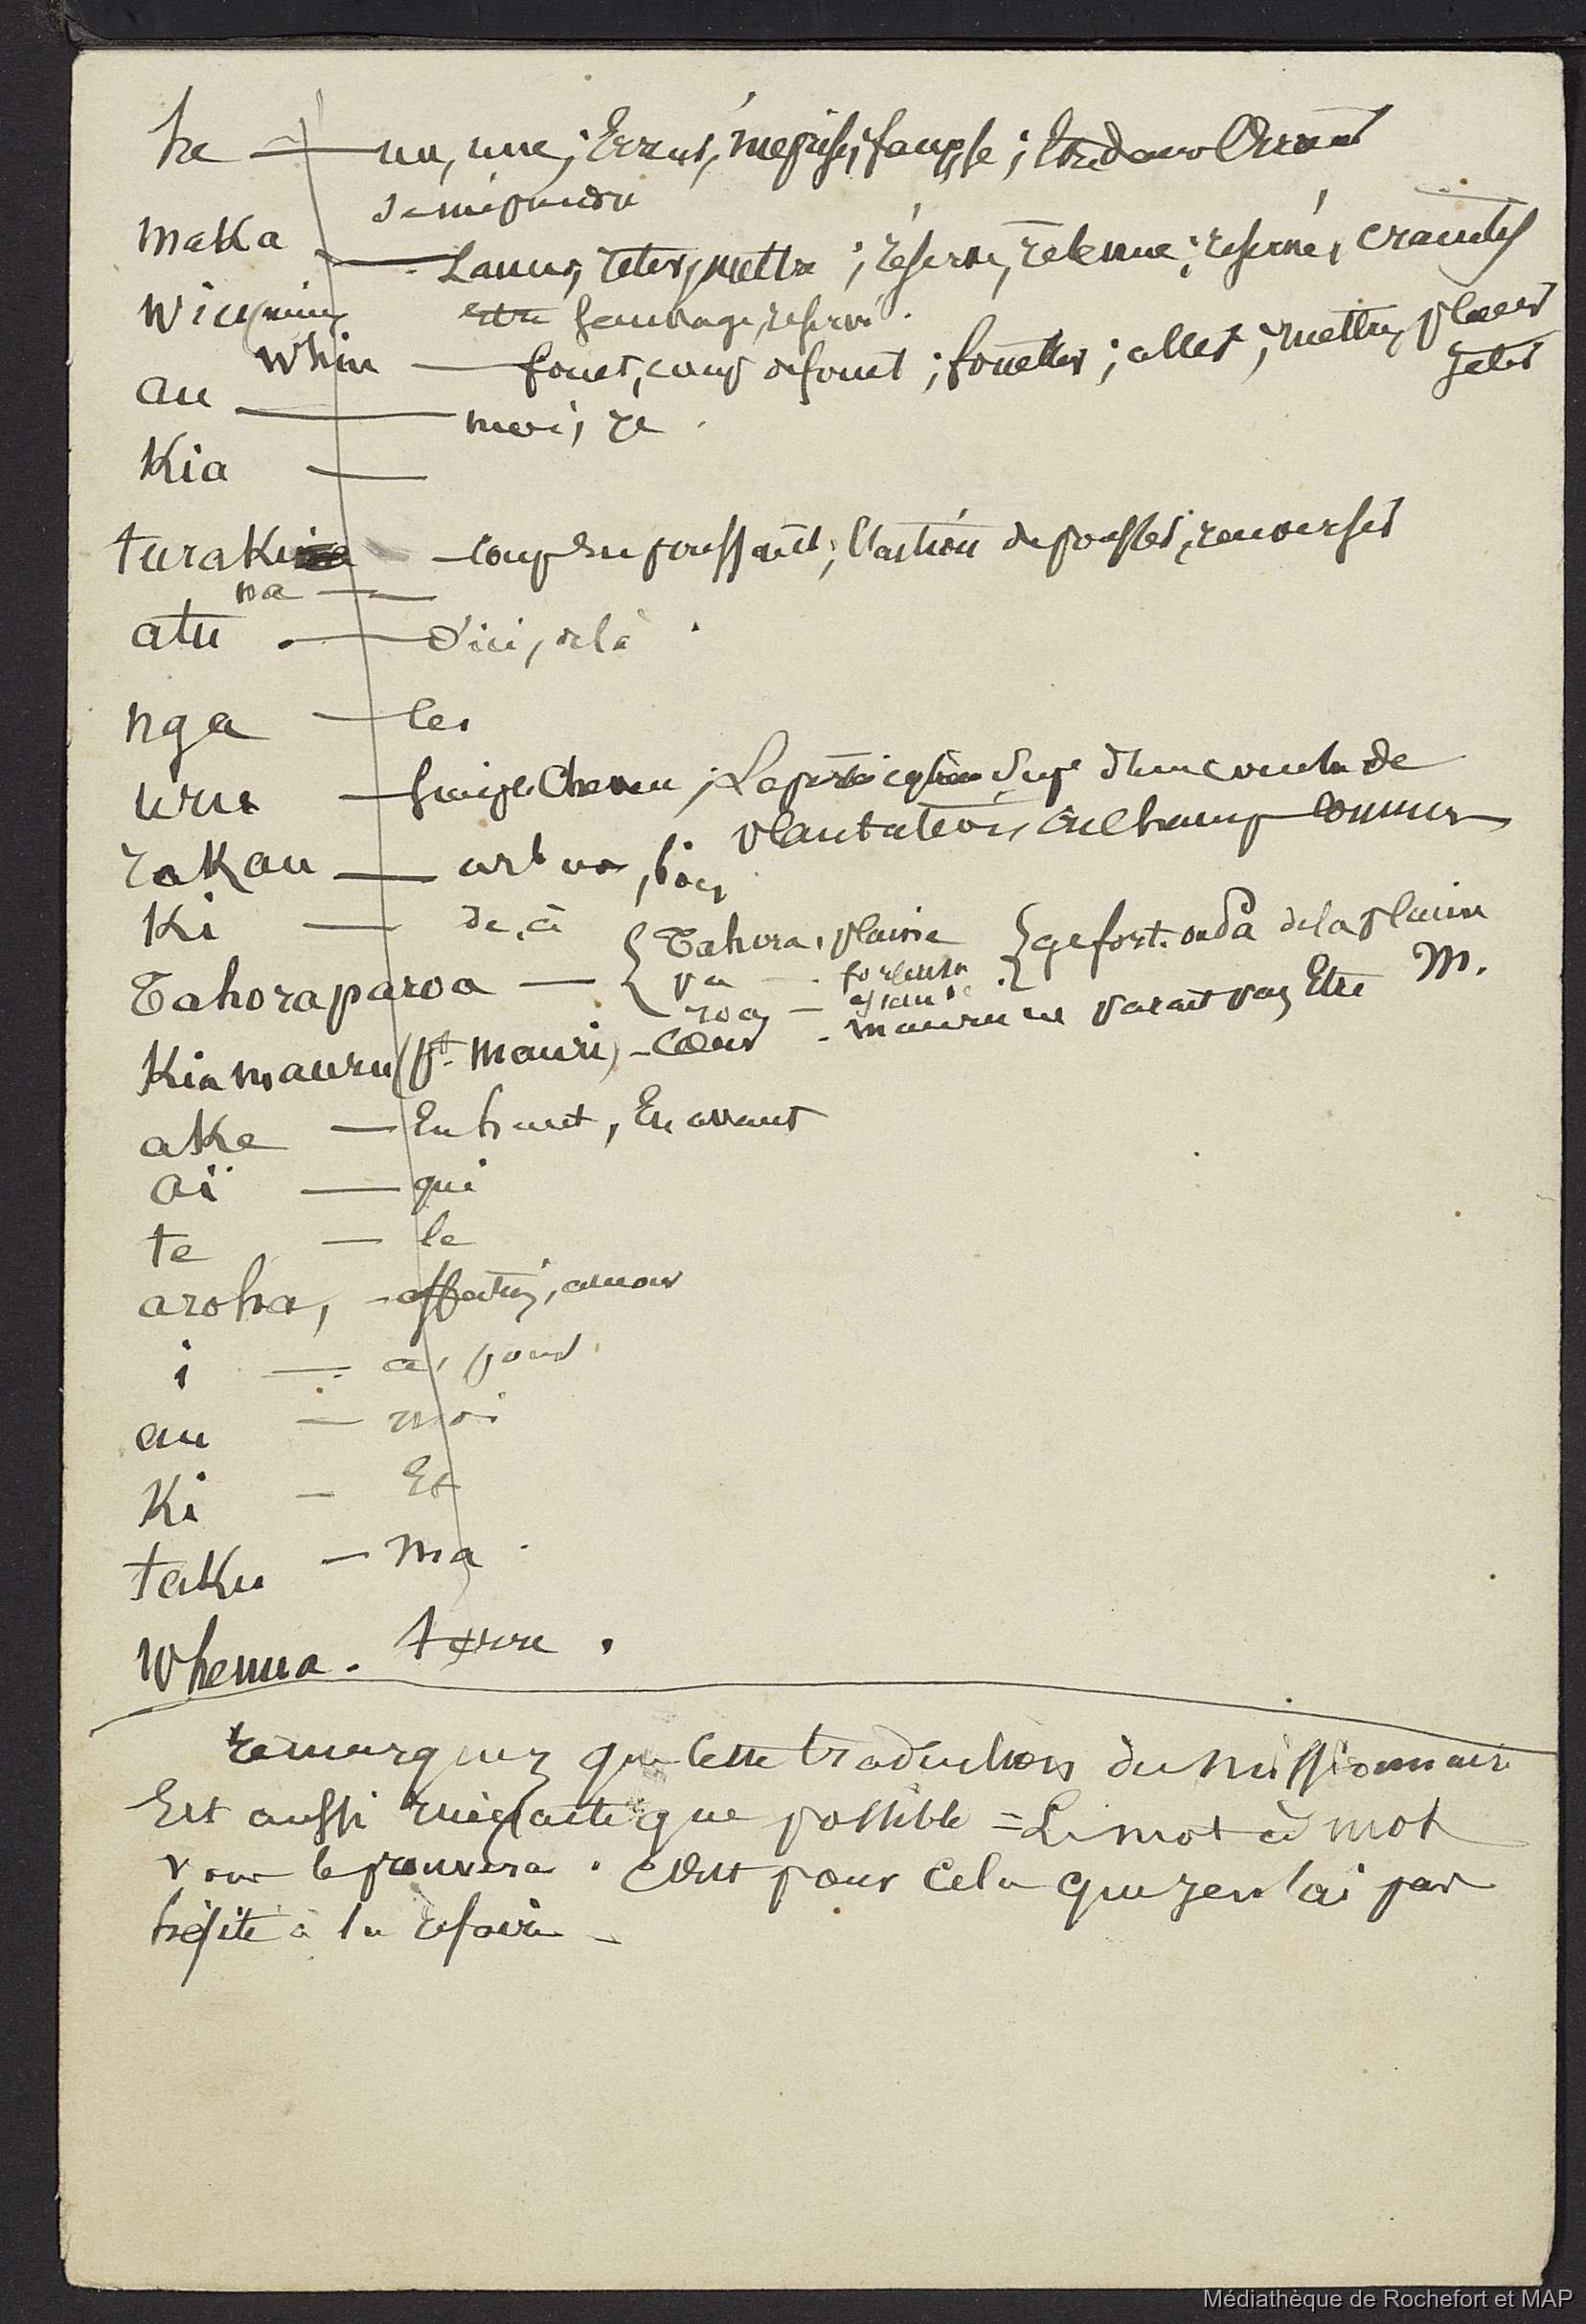 he — un, une; Erreur, méprise, fausse; être dans l'Erreur
se méprendre
maka — Lancer, jeter, mettre; réserve, retenue; réservé, craintif
être sauvage, réservé.
Whiu — fouet, coup de fouet; fouetter; aller; mettre, placer
jeter
au — moi, je.
Kia —
turaki — coup en poussant; l'action de pousser, renverser
na —
atu — d'ici, de là.
nga — les
uru — cheveu; d'une couche de
plantation, un champ
rakau — arbre, bois
Ki — de, à
Tahoraparoa — { Tahora, plaine } ge fort. ou Pa de la plaine
pa — forteresse
roa —
Kia mauru (pt. mauri) — Cœur - mauru ne parait pas Etre M.
ake — En haut, En avant
aï — qui
te — le
aroha, — affection, amour
i — à, pour
au — moi
Ki — Et
taku — ma.
Whenua. terre.
remarquez que cette traduction du missionnaire
Est aussi inexacte que possible = Le mot à mot
vous le prouvera. C'est pour cela que je n'ai pas
hésité à la refaire —
Médiathèque de Rochefort et MAP